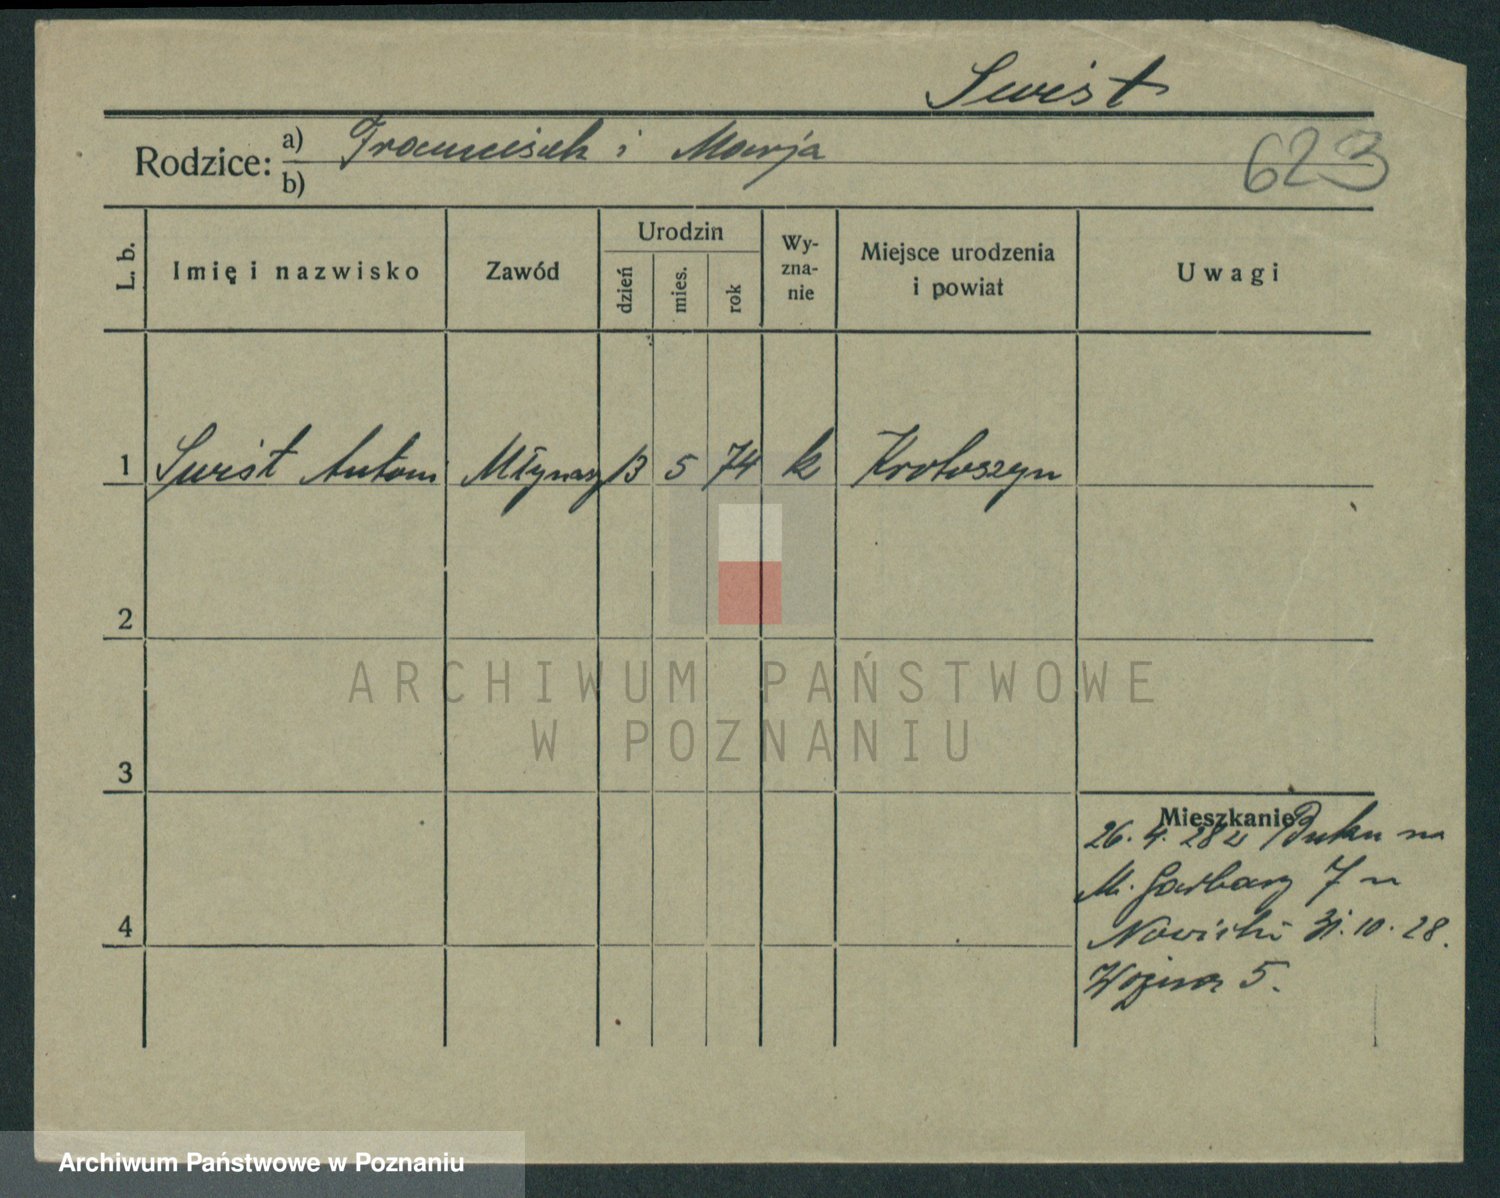 Swist
Rodzice: a) Franciszek i Marja
b)
623
L. b. Imię i nazwisko Zawód Urodzin dzień mies. rok Wyznanie Miejsce urodzenia i powiat Uwagi
1 Swist Antoni Młynarz 13 5 74 k Krotoszyn
2
3
4
Mieszkanie
26. 4. 28 z Buku na
M. Garbary 7 u
Nowicki 31. 10. 28.
5.
ARCHIWUM PAŃSTWOWE
W POZNANIU
Archiwum Państwowe w Poznaniu